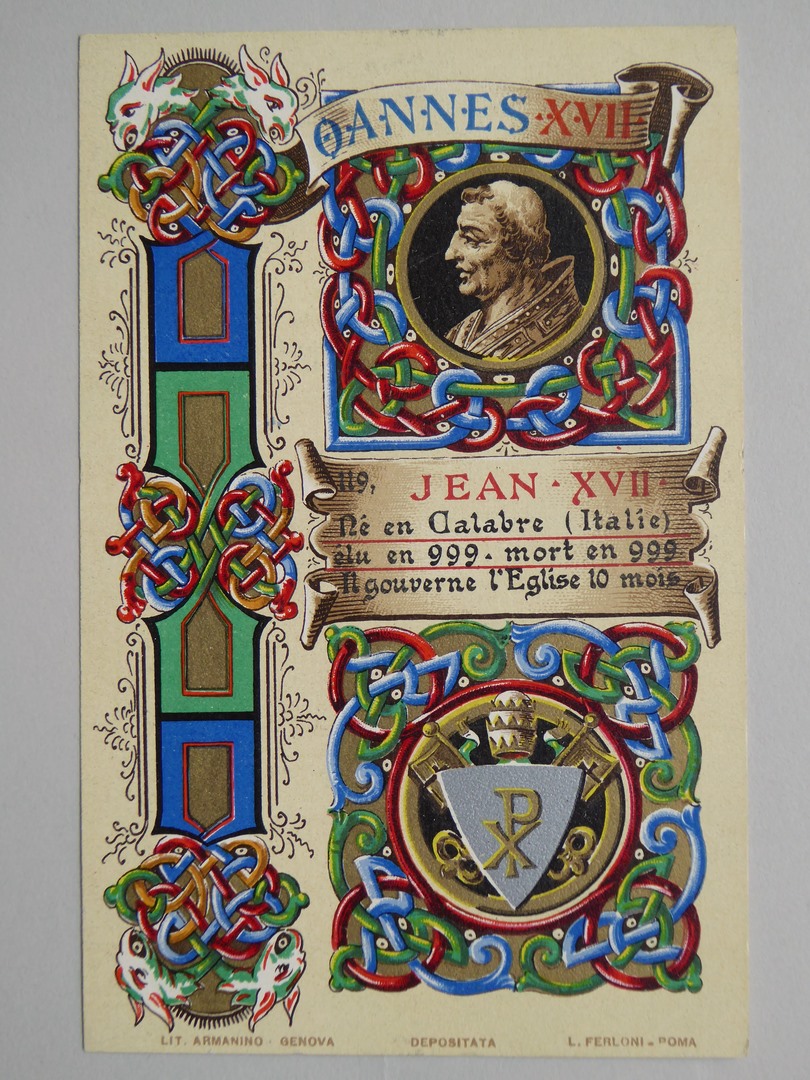 IO·A·N·N·E·S·X·VII·
119, JEAN · XVII ·
Né en Calabre (Italie)
élu en 999 - mort en 999
Il gouverne l'Eglise 10 mois
☧
LIT. ARMANINO - GENOVA DEPOSITATA L. FERLONI - ROMA